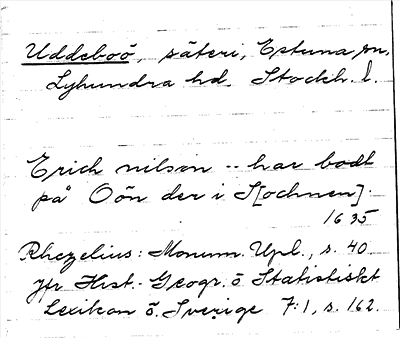 Uddeboö, säteri, Estuna sn,
Lyhundra hd. Stockh. l.
Erich nilson -- har bodt
på Oön der i S[ochnen].
1635
Rhezelius: Monum. Upl., s. 40
jfr Hist.-Geogr. o Statistiskt
Lexikon ö. Sverige 7:1, s. 162.